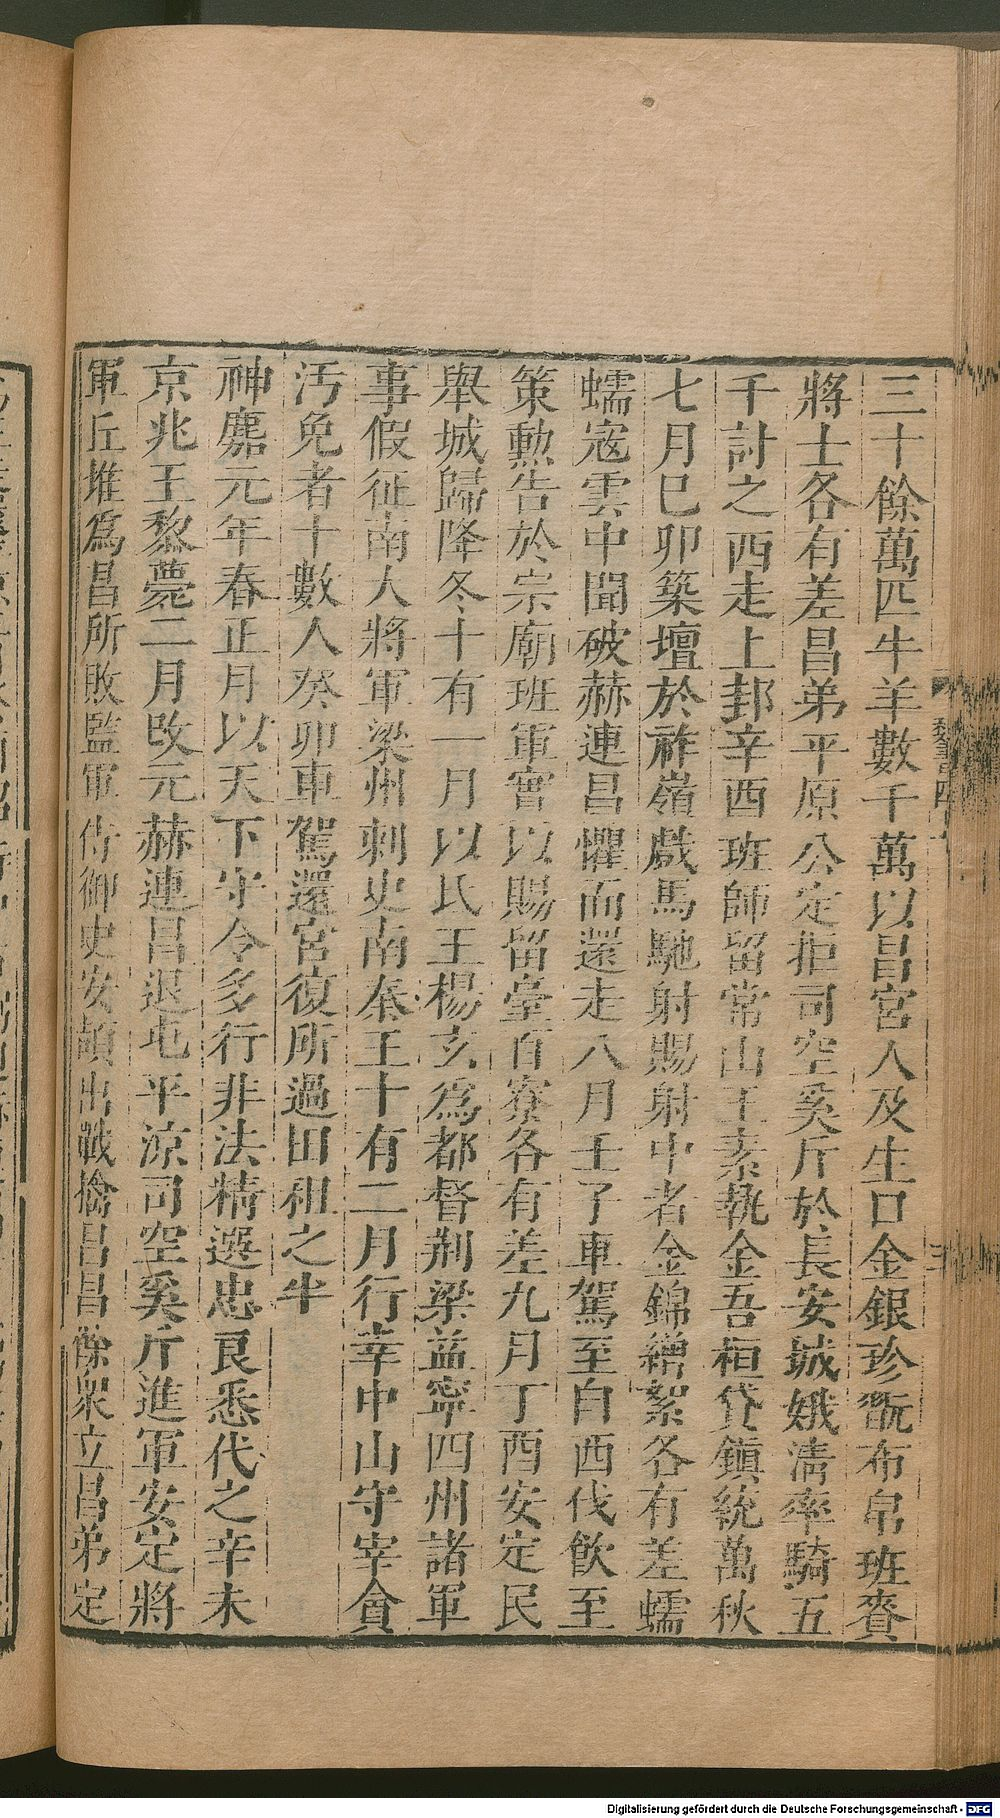 三十餘萬匹牛羊數千萬以昌宮人及生口金銀珍翫布帛班賚
將士各有差昌弟平原公定拒司空奚斤於長安城娥淸率騎五
千討之西走上邽辛酉班師留常山王素執金吾桓貸鎭統萬秋
七月巳卯築壇於祚嶺戲馬馳射賜射中者金錦繒絮各有差蠕
蠕寇雲中聞破赫連昌懼而還走八月壬子車駕至自西伐飮至
策勲告於宗廟班軍實以賜留臺百寮各有差九月丁酉安定民
舉城歸降冬十有一月以氐王楊玄爲都督荆梁益寧四州諸軍
事假征南大將軍梁州刺史南秦王十有二月行幸中山守宰貪
汚免者十數人癸卯車駕還宮復所過田租之半
神䴥元年春正月以天下守令多行非法精選忠良悉代之辛未
京兆王黎薨二月改元赫連昌退屯平涼司空奚斤進軍安定將
軍丘堆爲昌所敗監軍侍御史安頡出戰擒昌昌餘衆立昌弟定
魏書四
三
Digitalisierung gefördert durch die Deutsche Forschungsgemeinschaft - DFG